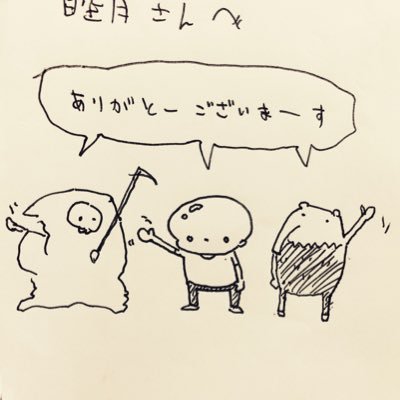 睦月さんへ
ありがとーございまーす